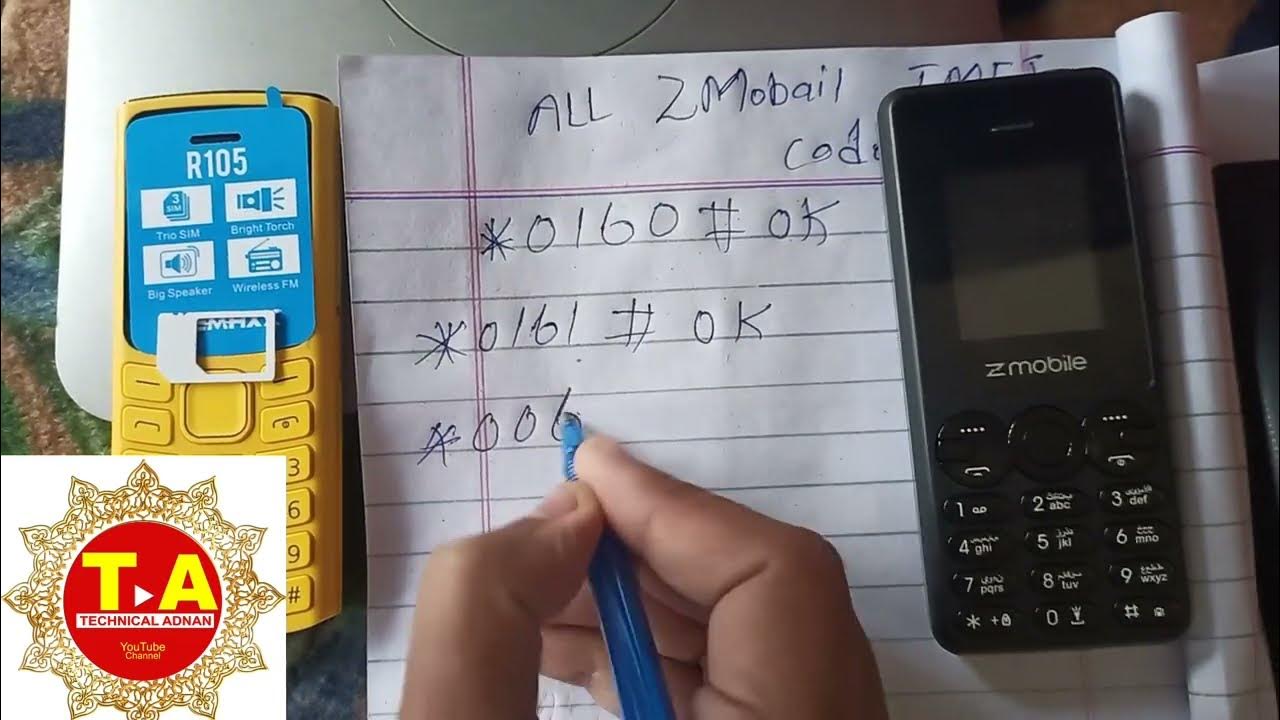 ALL ZMobail IMEI
Code
*0160# OK
*0161# OK
*006
R105
3
SIM
Trio SIM
Bright Torch
Big Speaker
Wireless FM
3
6
9
#
zmobile
1
2 abc
3 def
4 ghi
5 jkl
6 mno
7 pqrs
8 tuv
9 wxyz
* +
0
#
T A
TECHNICAL ADNAN
YouTube
Channel